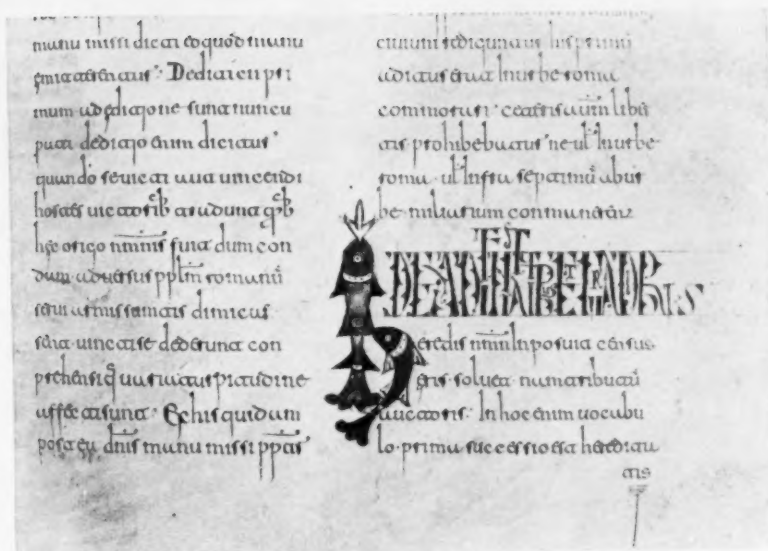 manu missi dicti eoquod manu
emitterentur Dediticii pri
mum a deditione sunt nuncu
pati deditio enim dicitur
quando se victi aut vincendi
hostes victorib tradunt qb
hęc origo nminis fuit dum con
dum adversus pplm romanu
servi armis sumtis dimicas
sent victi se dederunt con
prehensiq varia turpitudine
affecti sunt Ex his quidam
postea dnis manu missi pptr
civium rediguntur his primu
aditus erat In urbe roma
commorari ceteris autm liber
tis prohibebatur ne ul In urbe
roma ul Infra septimu abur
be miliarium commanerent
DE ADFINITATIBUS ET GRADIBUS
Heredis nmn Inposuit census
eris solvet nam tributu
auctoris In hoc enim vocabu
lo prima successio est heredita
tis